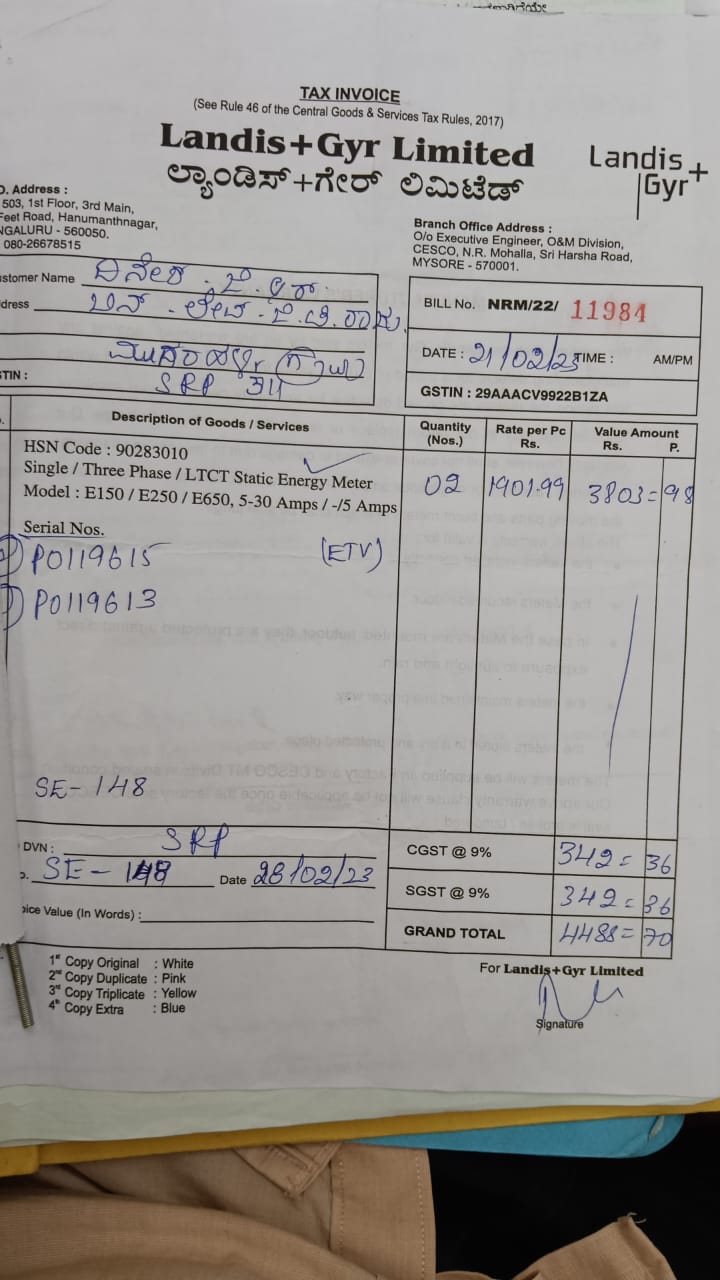 TAX INVOICE
(See Rule 46 of the Central Goods & Services Tax Rules, 2017)
Landis+Gyr Limited
ಲ್ಯಾಂಡಿಸ್+ಗೇರ್ ಲಿಮಿಟೆಡ್
Landis+
Gyr
Address :
503, 1st Floor, 3rd Main,
Feet Road, Hanumanthnagar,
NGALURU - 560050.
080-26678515
Branch Office Address :
O/o Executive Engineer, O&M Division,
CESCO, N.R. Mohalla, Sri Harsha Road,
MYSORE - 570001.
ustomer Name
dress
SRP
TIN :
BILL No. NRM/22/ 11984
DATE : 21/02/23 TIME : AM/PM
GSTIN : 29AAACV9922B1ZA
Description of Goods / Services Quantity (Nos.) Rate per Pc Rs. Value Amount Rs. P.
HSN Code : 90283010
Single / Three Phase / LTCT Static Energy Meter 02 1901.99 3803=98
Model : E150 / E250 / E650, 5-30 Amps / -/5 Amps
Serial Nos.
P0119615 (ETV)
P0119613
SE-148
DVN : SRP
SE-148 Date 28/02/23
oice Value (In Words) :
CGST @ 9% 342=36
SGST @ 9% 342=36
GRAND TOTAL 4488=70
1st Copy Original : White
2nd Copy Duplicate : Pink
3rd Copy Triplicate : Yellow
4th Copy Extra : Blue
For Landis+Gyr Limited
Signature